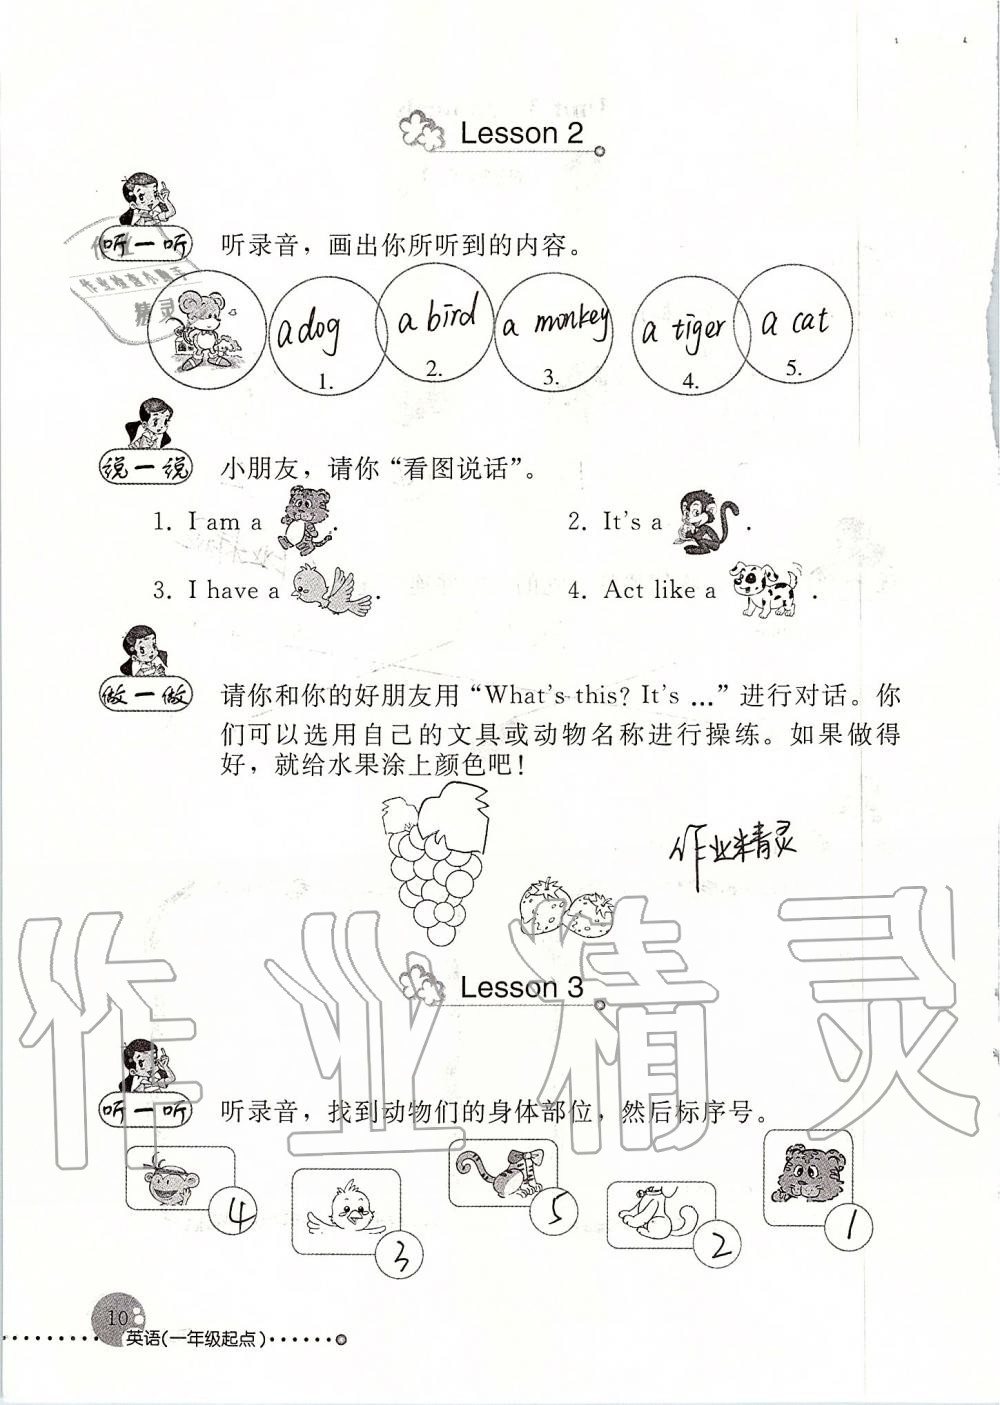 Lesson 2
听一听 听录音，画出你所听到的内容。
a dog a bird a monkey a tiger a cat
1. 2. 3. 4. 5.
说一说 小朋友，请你“看图说话”。
1. I am a . 2. It's a .
3. I have a . 4. Act like a .
做一做 请你和你的好朋友用“What's this? It's …”进行对话。你
们可以选用自己的文具或动物名称进行操练。如果做得
好，就给水果涂上颜色吧！
作业精灵
作业精灵
Lesson 3
听一听 听录音，找到动物们的身体部位，然后标序号。
4 3 5 2 1
10
英语(一年级起点)